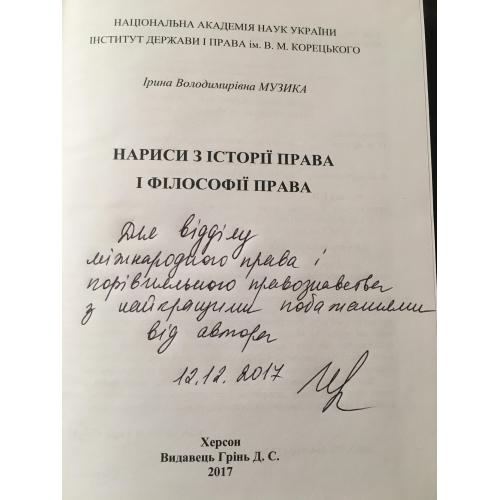 НАЦІОНАЛЬНА АКАДЕМІЯ НАУК УКРАЇНИ
ІНСТИТУТ ДЕРЖАВИ І ПРАВА ім. В. М. КОРЕЦЬКОГО
Ірина Володимирівна МУЗИКА
НАРИСИ З ІСТОРІЇ ПРАВА
І ФІЛОСОФІЇ ПРАВА
Для відділу
міжнародного права і
порівняльного правознавства
з найкращими побажаннями
від автора
12.12.2017
Херсон
Видавець Грінь Д. С.
2017